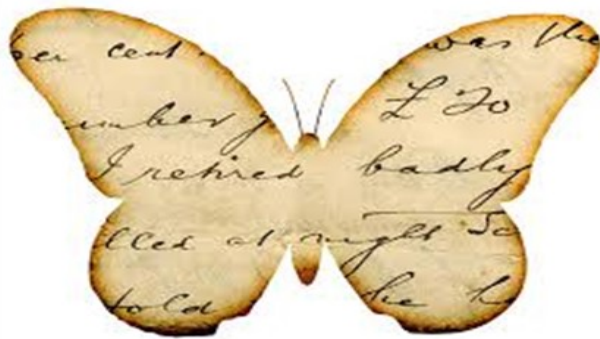 per cent was the
umber y £ 20
I retired badly
lled at night So
told he h